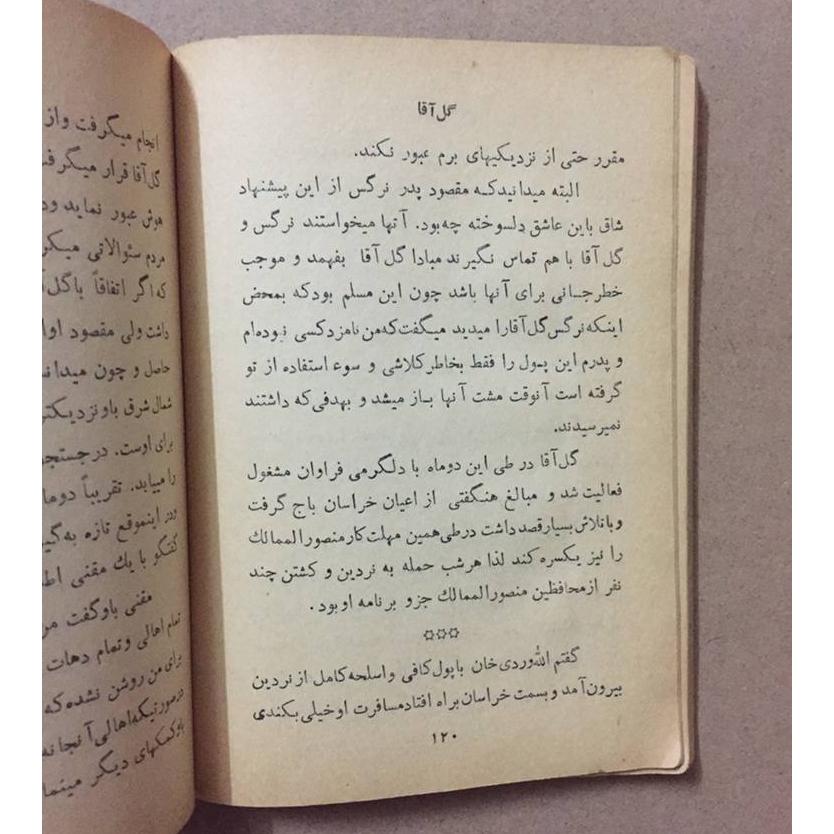 گل آقا
مقرر حتی از نزدیکیهای برم عبور نکند.
البته میدانیدکه مقصود پدر نرگس از این پیشنهاد
شاق باین عاشق دلسوخته چه‌بود. آنها میخواستند نرگس و
گل آقا با هم تماس نگیرند مبادا گل آقا بفهمد و موجب
خطرجانی برای آنها باشد چون این مسلم بودکه بمحض
اینکه نرگس گل‌آقارا میدید میگفت‌که‌من نامزدکسی نبوده‌ام
و پدرم این پول را فقط بخاطرکلاشی و سوء استفاده از تو
گرفته است آنوقت مشت آنها باز میشد و بهدفی‌که داشتند
نمیرسیدند.
گل‌آقا در طی این دوماه با دلگرمی فراوان مشغول
فعالیت شد و مبالغ هنگفتی از اعیان خراسان باج گرفت
و باتلاش بسیار قصد داشت درطی همین مهلت‌کارمنصورالممالك
را نیز یکسره کند لذا هرشب حمله به نردین و کشتن چند
نفر ازمحافظین منصورالممالك جزو برنامه اوبود.
✡✡✡
گفتم الله‌وردی‌خان باپول‌کافی واسلحه‌کامل از نردین
بیرون‌آمد و بسمت خراسان براه افتادمسافرت اوخیلی‌بکندی
۱۲۰
انجام میگرفت واز
گل‌آقا قرار میگرفت
هوش عبور نماید ود
مردم سئوالاتی میکر
که اگر اتفاقاً باگل
داشت ولی مقصود اوا
حاصل و چون میدا
شمال شرق باونزدیکتر
برای اوست. درجستج
را میابد. تقریباً دوما
ودر اینموقع تازه به
گفتگو با یك مقنی اط
مقنی باوگفت مر
تمام اهالی وتمام دهات
برای من روشن نشده‌که
درصورتیکه‌اهالی آنجا نه
باوکمکهای دیگر مینما